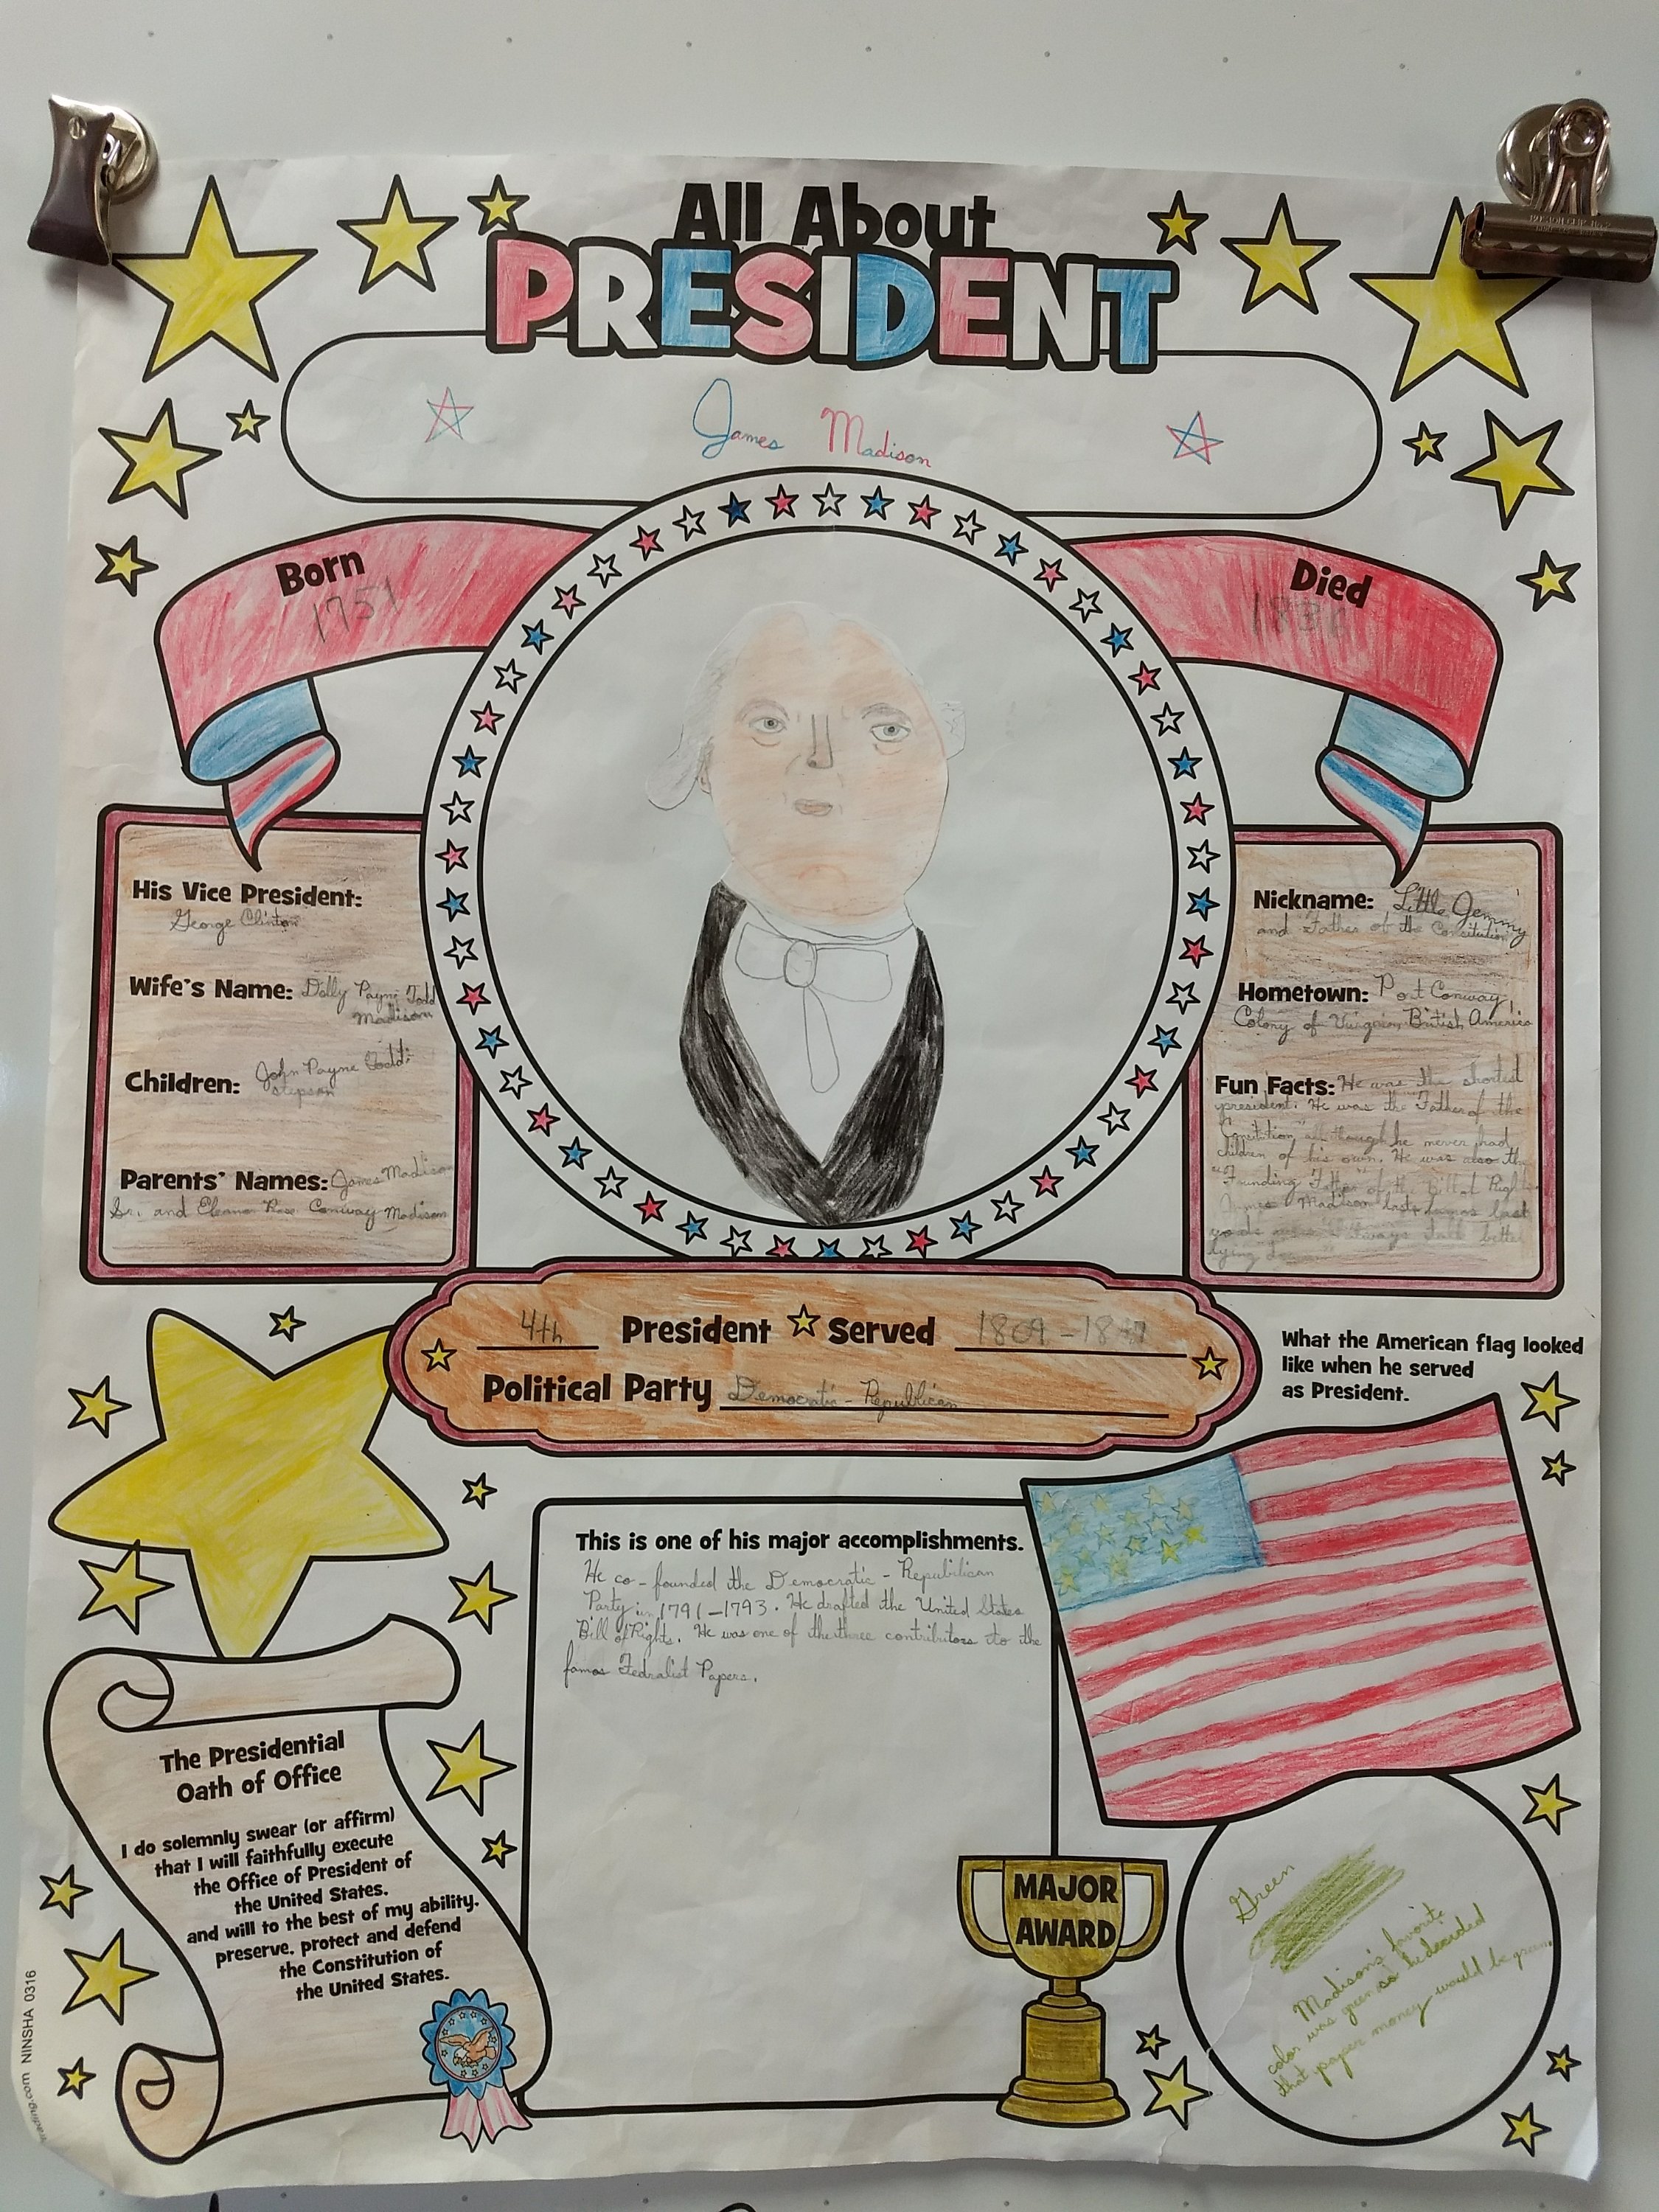 All About
PRESIDENT
James Madison
Born
1751
Died
1836
His Vice President:
George Clinton
Wife's Name: Dolly Payne Todd
Madison
Children: John Payne Todd:
stepson
Parents' Names: James Madison
Sr. and Eleanor Rose Conway Madison
Nickname: Little Jemmy
and Father of the Consitution
Hometown: Port Conway,
Colony of British America
Fun Facts: He was the shortest
president. He was the "Father of the
Consitution" although he never had
children of his own. He was also the
"Founding Father" of the Bill of
James Madison last
always talk better
lying
4th President Served 1809-1817
Political Party Democratic-Republican
What the American flag looked
like when he served
as President.
This is one of his major accomplishments.
He co-founded the Democratic-Repubilican
Party in 1791-1793. He drafted the United States
Bill of Rights. He was one of the three contributors to the
famos Fedralist Papers.
The Presidential
Oath of Office
I do solemnly swear (or affirm)
that I will faithfully execute
the Office of President of
the United States.
and will to the best of my ability,
preserve, protect and defend
the Constitution of
the United States.
MAJOR
AWARD
Green
Madison's favorite
color was green so he decided
that paper money would be green.
rading.com NINSHA 0316